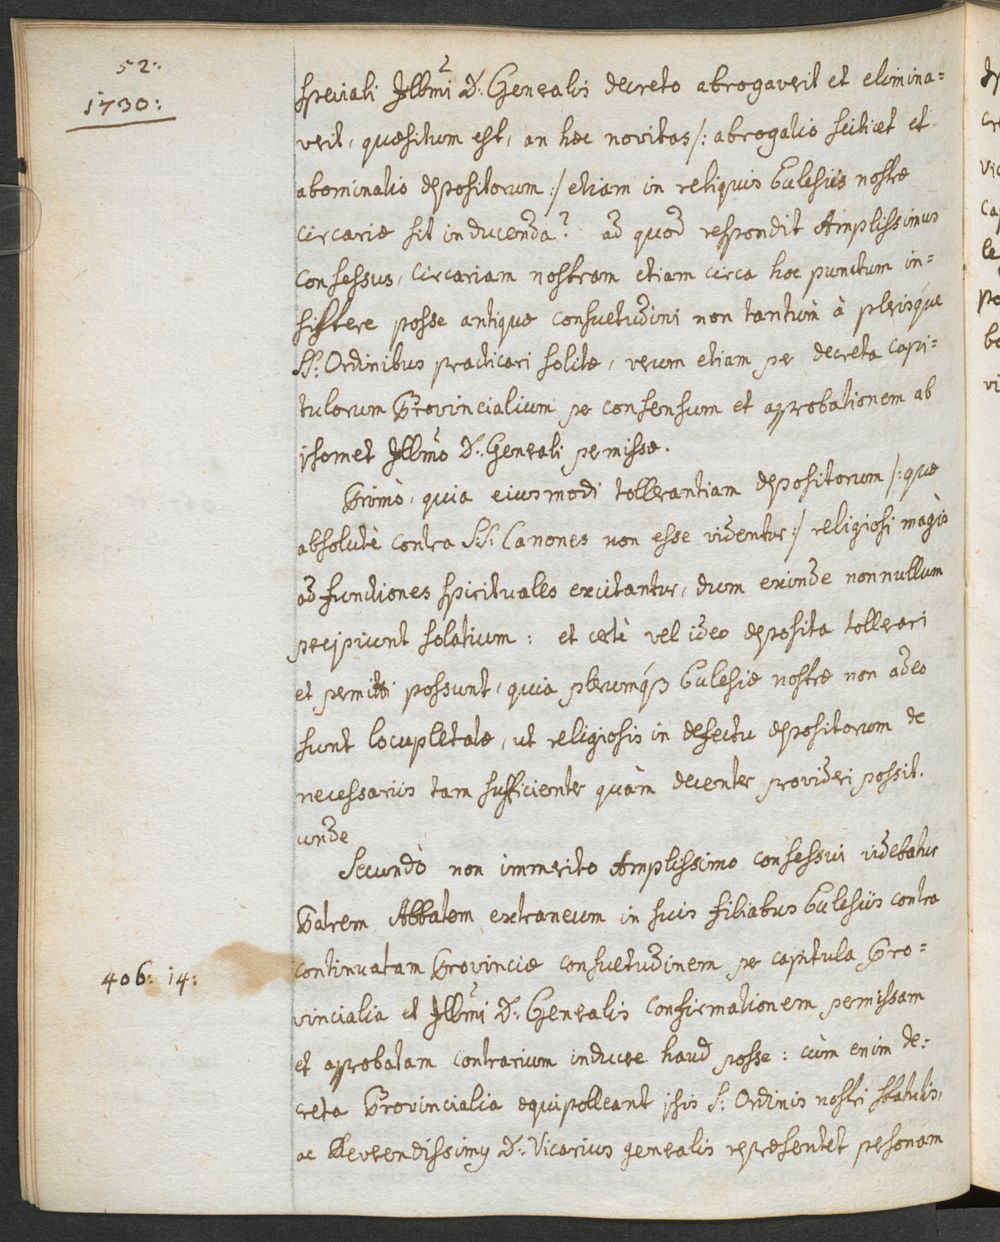 52:
1730:
speciali Jllmi D. Generalis decreto abrogaverit et elimina=
verit, quæsitum est, an hæc novitas /: abrogatio scilicet et
abominatio depositorum :/ etiam in reliquis Ecclesiis nostræ
circariæ sit inducenda? ad quod respondit Amplissimus
Consessus, Circariam nostram etiam circa hoc punctum in=
sistere posse antiquæ consuetudini non tantùm à plerisque
SS: Ordinibus practicari solitæ, verum etiam per decreta capi=
tulorum Provincialium per consensum et approbationem ab
ipsomet Jllmo D. Generali permissæ.
Primò, quia eiusmodi tollerantiam depositorum /: quæ
absolutè contra SS: Canones non esse videntur :/ religiosi magis
ad functiones spirituales excitantur, dum exinde nonnullum
percipiunt solatium : et certè vel ideo deposita tollerari
et permitti possunt, quia plerumque Ecclesiæ nostræ non adeo
sunt locupletatæ, ut religiosis in defectu depositorum de
necessariis tam sufficienter quàm decenter provideri possit.
unde
Secundò non immerito Amplissimo consessui videbatur
Patrem Abbatem extraneum in suis filiabus Ecclesiis contra
406: 14:
continuatam Provinciæ consuetudinem per capitula Pro=
vincialia et Jllmi D. Generalis confirmationem permissam
et approbatam contrarium inducere haud posse : cùm enim de=
creta Provincialia æquipolleant ipsis S: Ordinis nostri statutis,
ac Reverendissimg D. Vicarius generalis repræsentet personam